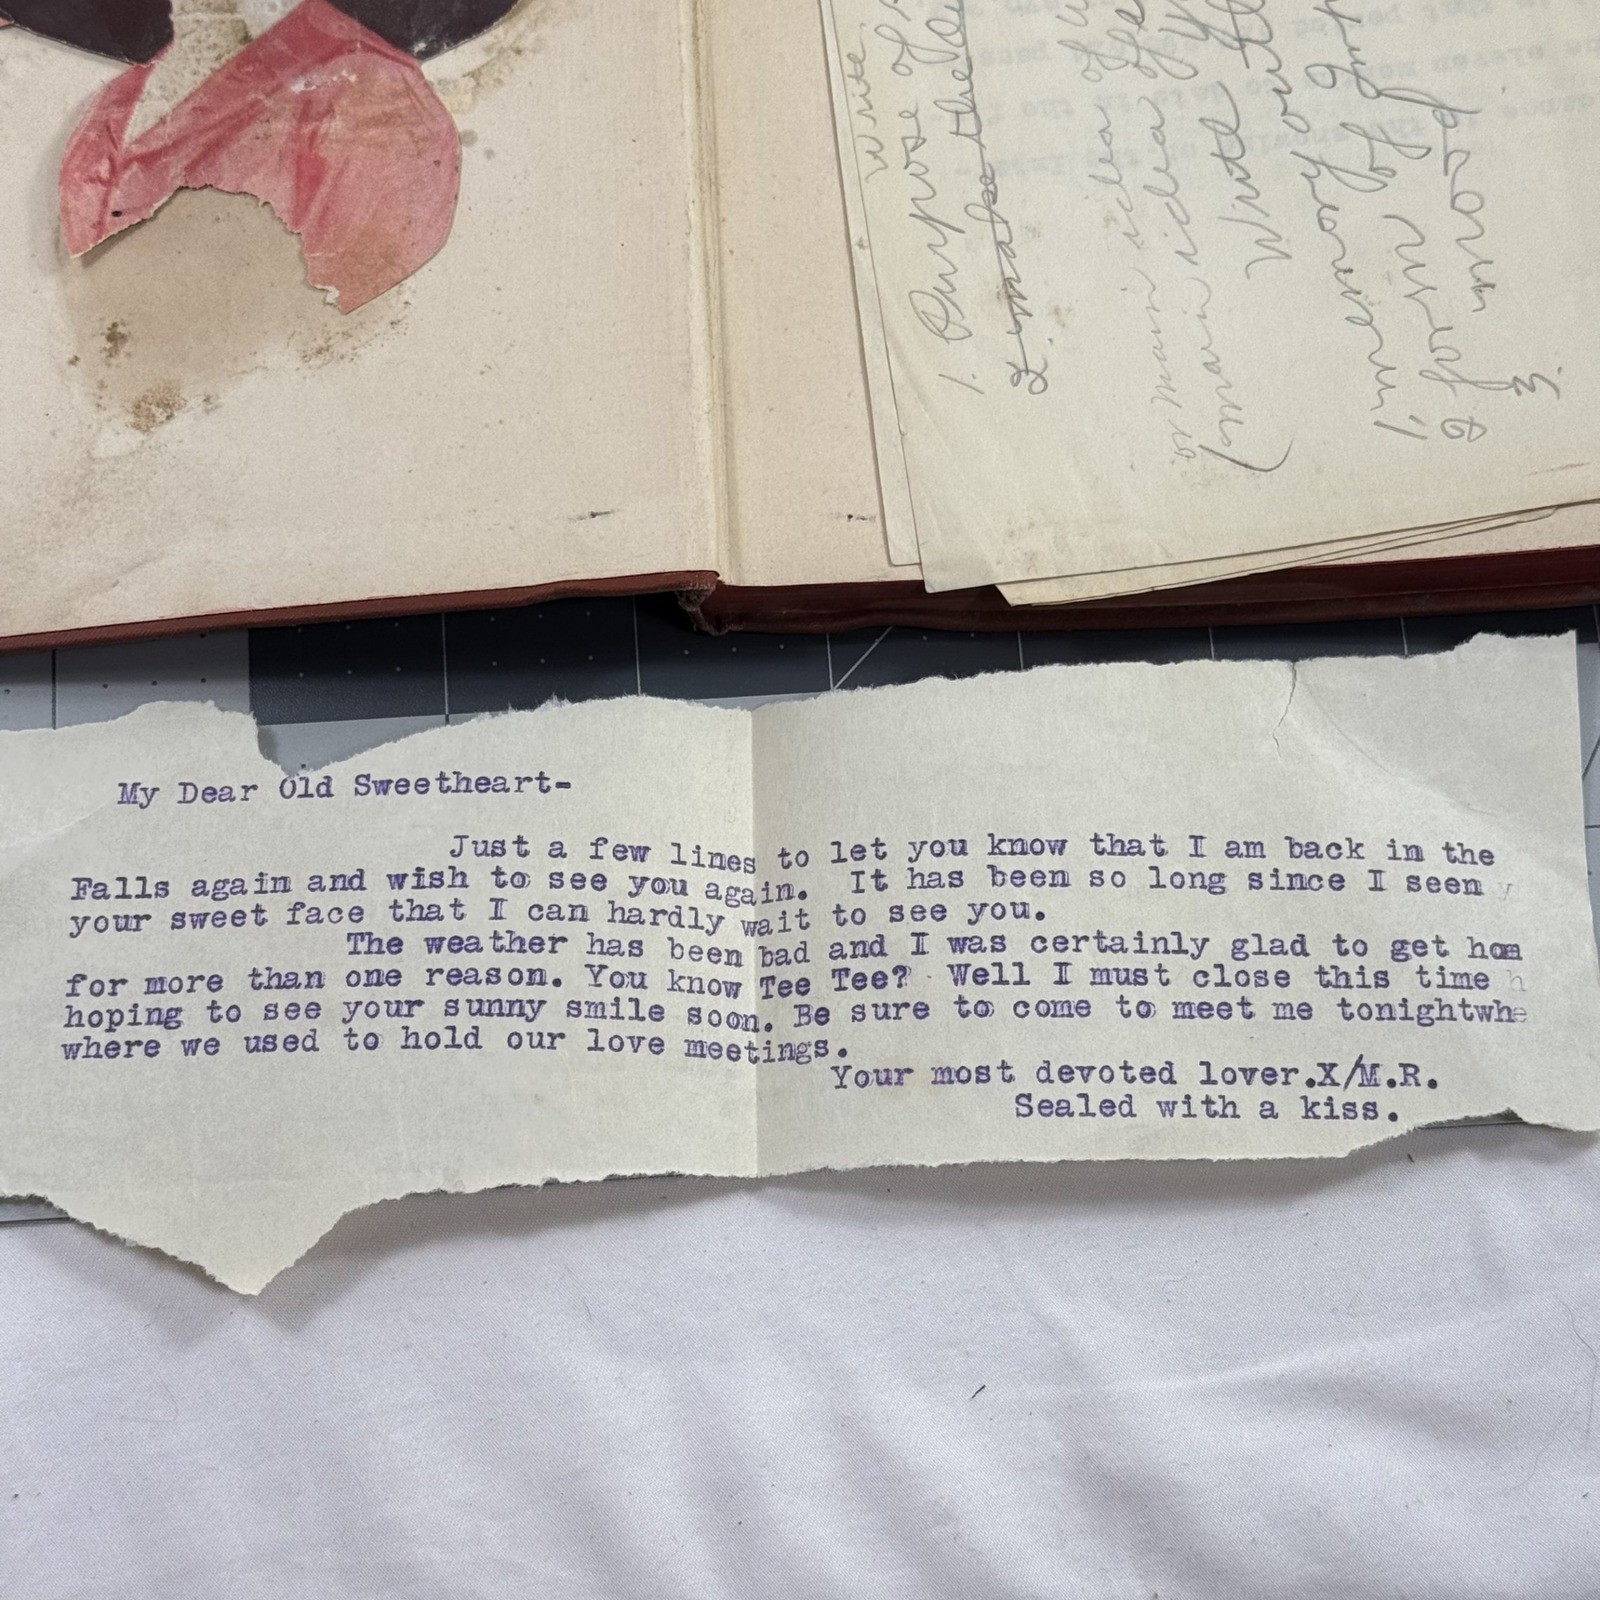 write
1. Purpose of
2. make the
idea of
or main idea of
(main idea
Write out
1. memory
2. form of
3. mood
My Dear Old Sweetheart-
Just a few lines to let you know that I am back in the
Falls again and wish to see you again. It has been so long since I seen y
your sweet face that I can hardly wait to see you.
The weather has been bad and I was certainly glad to get hom
for more than one reason. You know Tee Tee? Well I must close this time h
hoping to see your sunny smile soon. Be sure to come to meet me tonightwhe
where we used to hold our love meetings.
Your most devoted lover.X/M.R.
Sealed with a kiss.